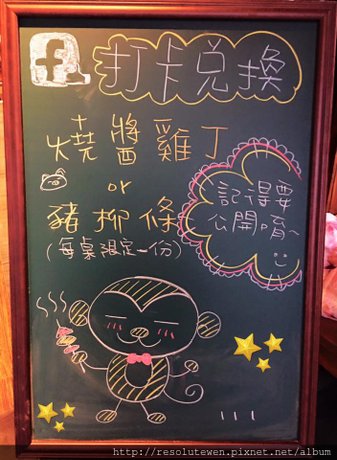 f 打卡兌換
燒醬雞丁
or
豬柳條
(每桌限定一份)
記得要
公開唷~
http://resolutewen.pixnet.net/album